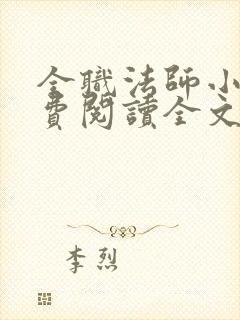 全職法師小
費閱讀全文
李烈